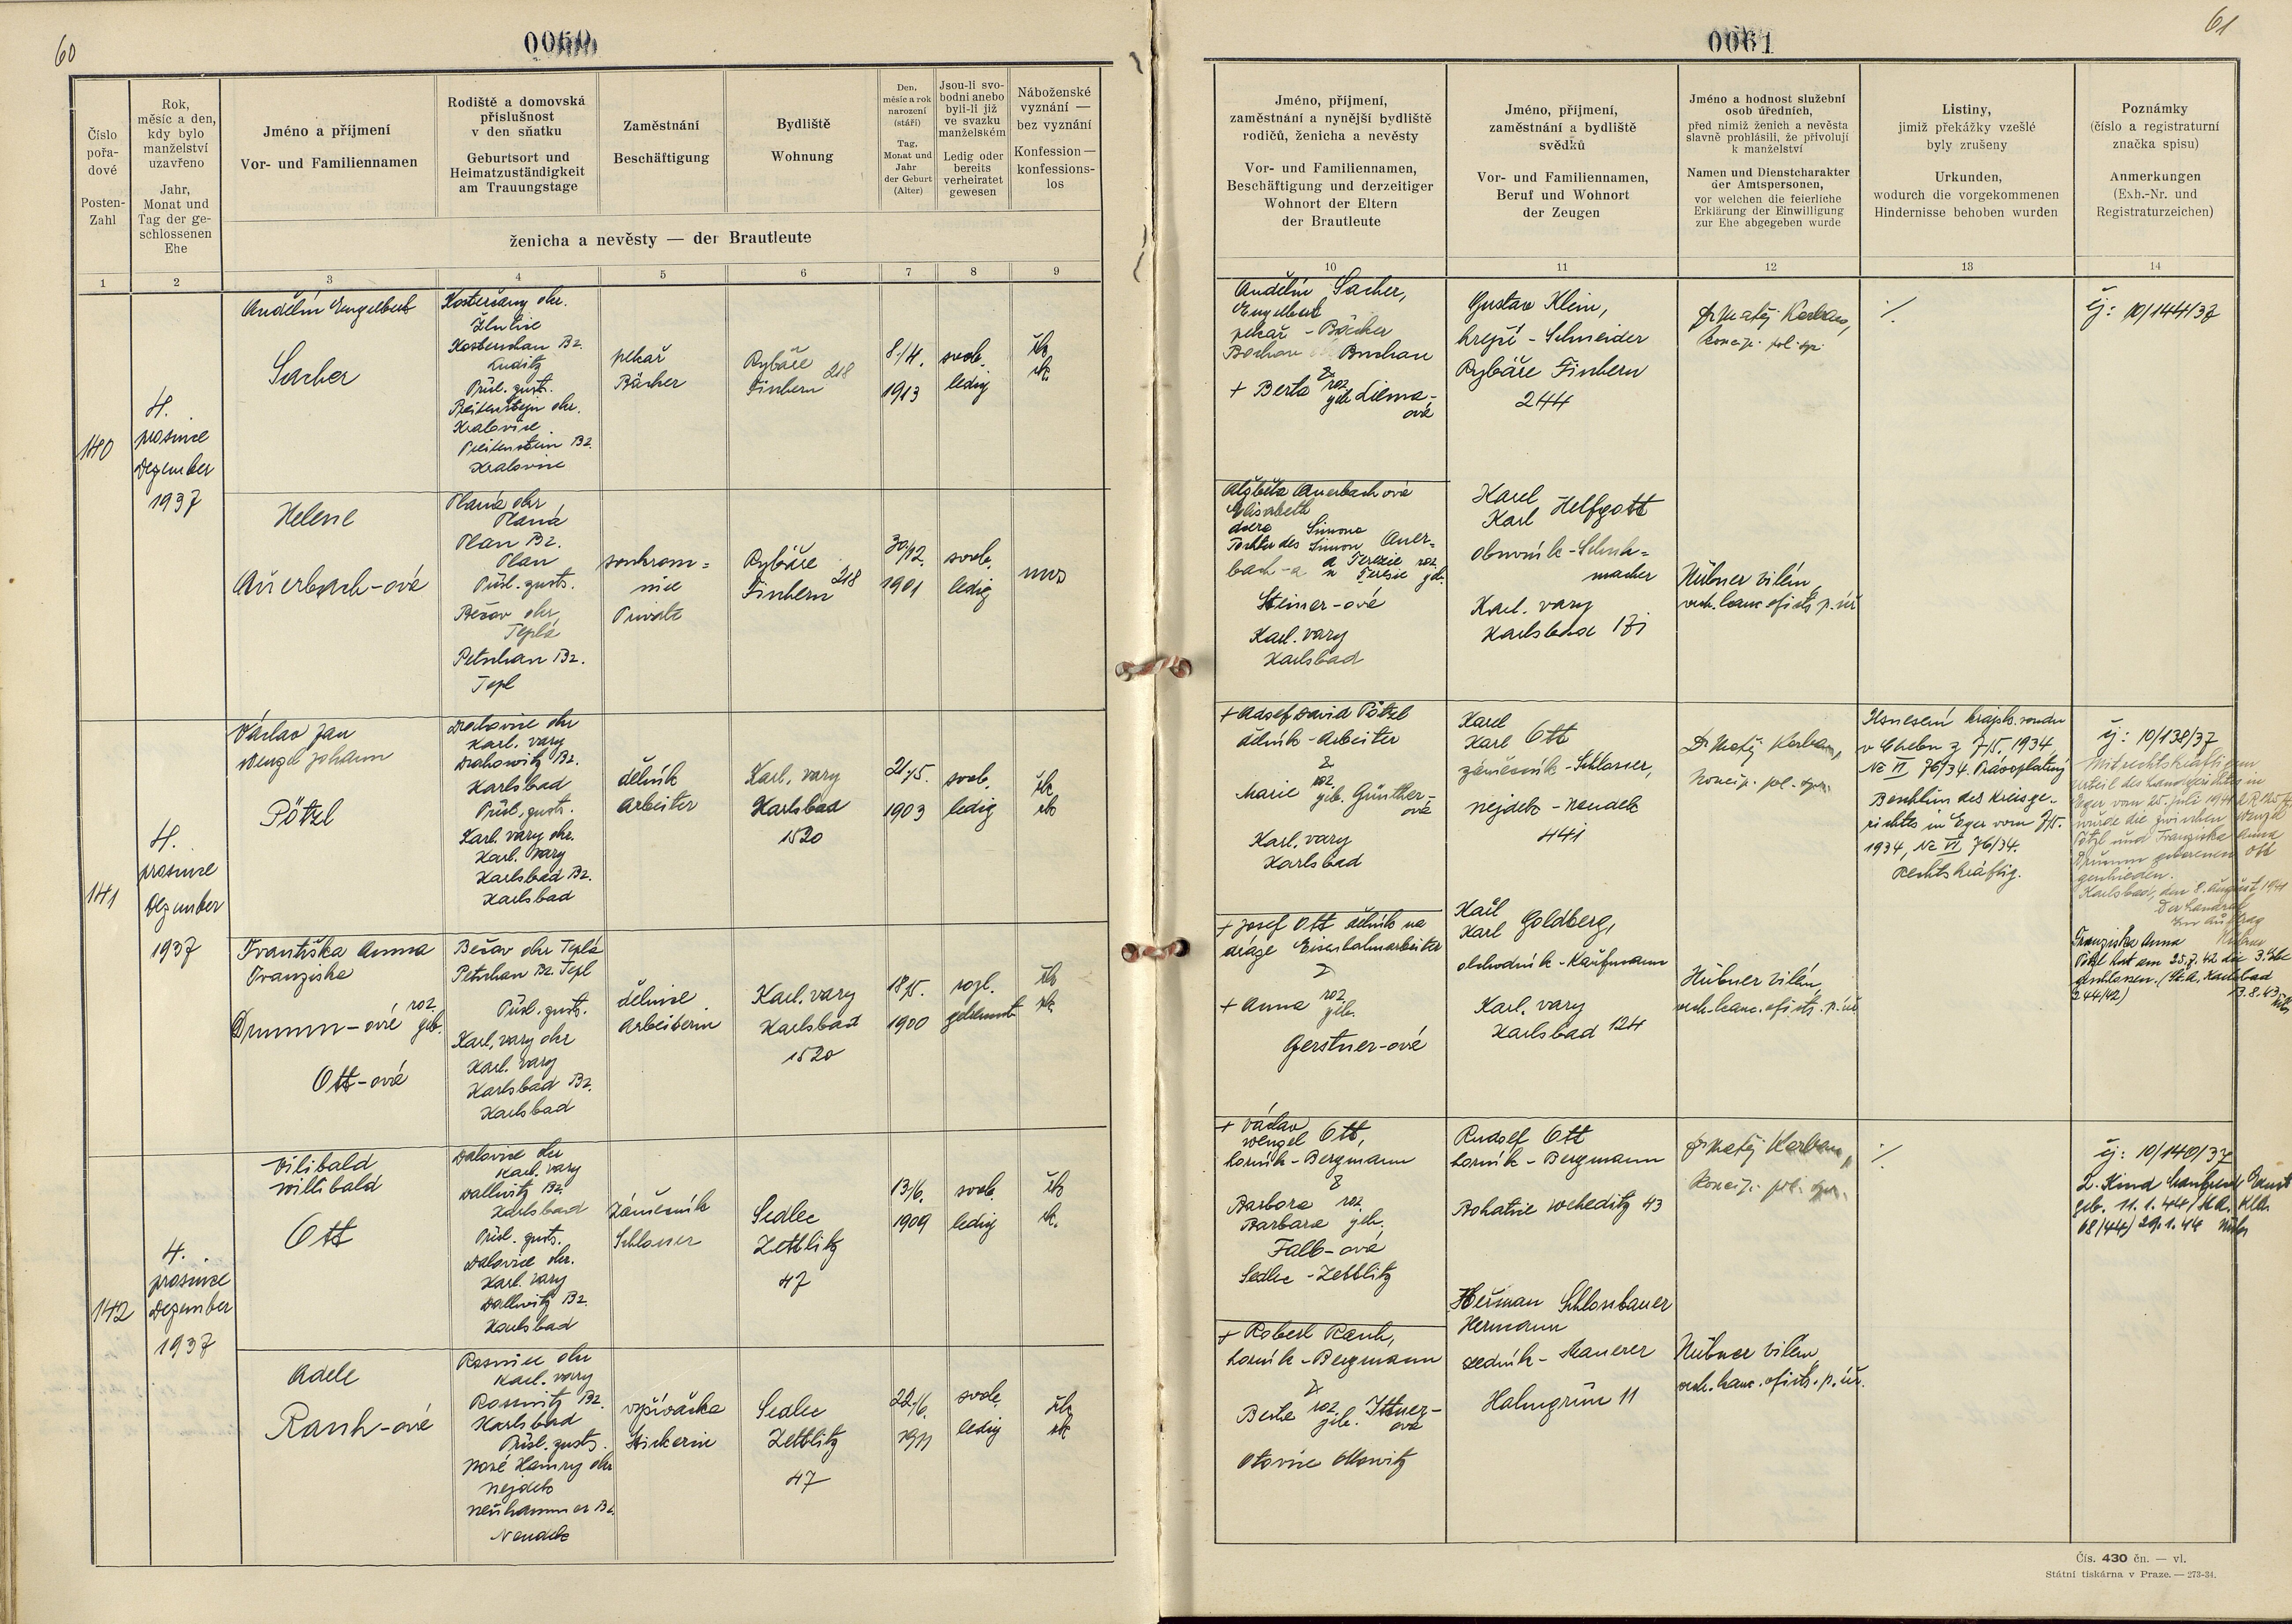 60
0060
Číslo pořa-dové
Posten-Zahl
Rok, měsíc a den, kdy bylo manželství uzavřeno
Jahr, Monat und Tag der ge-schlossenen Ehe
Jméno a příjmení
Vor- und Familiennamen
Rodiště a domovská příslušnost v den sňatku
Geburtsort und Heimatzuständigkeit am Trauungstage
Zaměstnání
Beschäftigung
Bydliště
Wohnung
Den, měsíc a rok narození (stáří)
Tag, Monat und Jahr der Geburt (Alter)
Jsou-li svo-bodni anebo byli-li již ve svazku manželském
Ledig oder bereits verheiratet gewesen
Náboženské vyznání — bez vyznání
Konfession — konfessions-los
ženicha a nevěsty — der Brautleute
1 2 3 4 5 6 7 8 9
140
4.
prosince
Dezember
1937
Andělín Engelbert
Sacher
Kosterčany okr.
Žlutice
Kosterschan Bz.
Luditz
Přísl. gusts.
Breitenstein okr.
Kralovice
Breitenstein Bz.
Kralovice
pekař
Bäcker
Rybáře
Fischern 218
8./4.
1913
svob.
ledig
řk
rk.
Helene
Auerbach-ová
Planá okr
Planá
Plan Bz.
Plan
Přísl. gusts.
Bečov okr
Teplá
Petschau Bz.
Tepl
soukrom=
nice
Private
Rybáře
Fischern 218
30./12.
1901
svob.
ledig
mos
141
4.
prosince
Dezember
1937
Václav Jan
Wenzel Johann
Pötzl
Drahovice okr
Karl. vary
Drahowitz Bz.
Karlsbad
Přísl. gusts.
Karl. vary okr.
Karl. vary
Karlsbad Bz.
Karlsbad
dělník
Arbeiter
Karl. vary
Karlsbad
1520
21./5.
1903
svob.
ledig
řk
rk
Františka Anna
Franziska
Drumm-ová roz. geb.
Ott-ová
Bečov okr Teplá
Petschau Bz. Tepl
Přísl. gusts.
Karl. vary okr
Karl. vary
Karlsbad Bz.
Karlsbad
dělnice
Arbeiterin
Karl. vary
Karlsbad
1520
18/5.
1900
rozl.
getrennt
řk
rk.
142
4.
prosince
Dezember
1937
Vilibald
Willibald
Ott
Dalovice okr
Karl. vary
Dallwitz Bz.
Karlsbad
Přísl. gusts.
Dalovice okr.
Karl. vary
Dallwitz Bz.
Karlsbad
Zámečník
Schlosser
Sedlec
Zettlitz
47
13/6.
1909
svob.
ledig
řk
rk.
Adele
Ranh-ová
Rosnice okr
Karl. vary
Rossnitz Bz.
Karlsbad
Přísl. gusts.
Nové Hamry okr
Nejdek
Neuhammer Bz.
Neudek
vyšívačka
Stickerin
Sedlec
Zettlitz
47
22./6.
1911
svob.
ledig
řk
rk
61
0061
Jméno, příjmení, zaměstnání a nynější bydliště rodičů, ženicha a nevěsty
Vor- und Familiennamen, Beschäftigung und derzeitiger Wohnort der Eltern der Brautleute
Jméno, příjmení, zaměstnání a bydliště svědků
Vor- und Familiennamen, Beruf und Wohnort der Zeugen
Jméno a hodnost služební osob úředních, před nimiž ženich a nevěsta slavně prohlásili, že přivolují k manželství
Namen und Dienstcharakter der Amtspersonen, vor welchen die feierliche Erklärung der Einwilligung zur Ehe abgegeben wurde
Listiny, jimiž překážky vzešlé byly zrušeny
Urkunden, wodurch die vorgekommenen Hindernisse behoben wurden
Poznámky (číslo a registraturní značka spisu)
Anmerkungen (Exh.-Nr. und Registraturzeichen)
10 11 12 13 14
Andělín Sacher,
Engelbert
pekař - Bäcker
Bochov Buchau
&
+ Berta roz. geb. Liema-
ová
Gustav Klein,
krejčí - Schneider
Rybáře Fischern
244
Dr Matěj Korban,
Koncip. pol. spr.
./.
čj: 10/144/37
Alžběta Auerbachová
Elisabeth
dcera Simona
Tochter des Simon Auer=
bach-a a Terezie roz.
u Teresie geb.
Steiner-ová
Karl. vary
Karlsbad
Karel
Karl Helfgott
obuvník - Schuh=
macher
Karl. vary
Karlsbad 171
Hübner Vilém,
vrch. kanc. ofists. p. úř
+ Adolf David Pötzl
dělník - Arbeiter
&
Marie roz. geb. Günther-
ová
Karl. vary
Karlsbad
Karel
Karl Ott
zámečník - Schlosser,
Nejdek - Neudek
441
Dr Matěj Korban,
Koncip. pol. spr.
Usnesení krajsk. soudu
v Chebu z 7/5. 1934,
Nc VI 76/34. Právoplatný
Beschluss des Kreisge-
richtes in Eger vom 7/5.
1934, Nc VI 76/34.
Rechtskräftig.
čj: 10/138/37
Mit rechtskräftigem
Urteil des Landgerichtes in
Eger vom 25. Juli 1941
wurde die zwischen Wenzel
Pötzl und Franziska Anna
Drumm geborenen Ott
geschieden.
Karlsbad, den 8. August 1941
Der Landrat
Im Auftrag
Hübner
Franziska Anna
Pötzl hat am 25.7.42 die 3. Ehe
geschlossen. (St.A. Karlsbad
244/42) 3.8.43
+ Josef Ott dělník na
dráze Eisenbahnarbeiter
&
+ Anna roz. geb.
Gerstner-ová
Karel
Karl Goldberg,
obchodník - Kaufmann
Karl. vary
Karlsbad 124
Hübner Vilém,
vrch. kanc. ofists. p. úř
+ Václav
Wenzel Ott,
horník - Bergmann
&
Barbora roz.
Barbara geb.
Falb-ová
Sedlec - Zettlitz
Rudolf Ott
horník - Bergmann
Bohatice Weheditz 43
Dr Matěj Korban,
Koncip. pol. spr.
./.
čj: 10/140/37
2. Kind Manfred Ernst
geb. 11.1.44
68/44) 29.1.44
+ Robert Ranh,
horník - Bergmann
&
Berta roz. geb. Ittner-
ová
Otovice Ottowitz
Heřman Schlossbauer
Hermann
zedník - Maurer
Halmgrün 11
Hübner Vilém,
vrch. kanc. ofists. p. úř.
Čís. 430 čn. — vl.
Státní tiskárna v Praze. — 273-34.